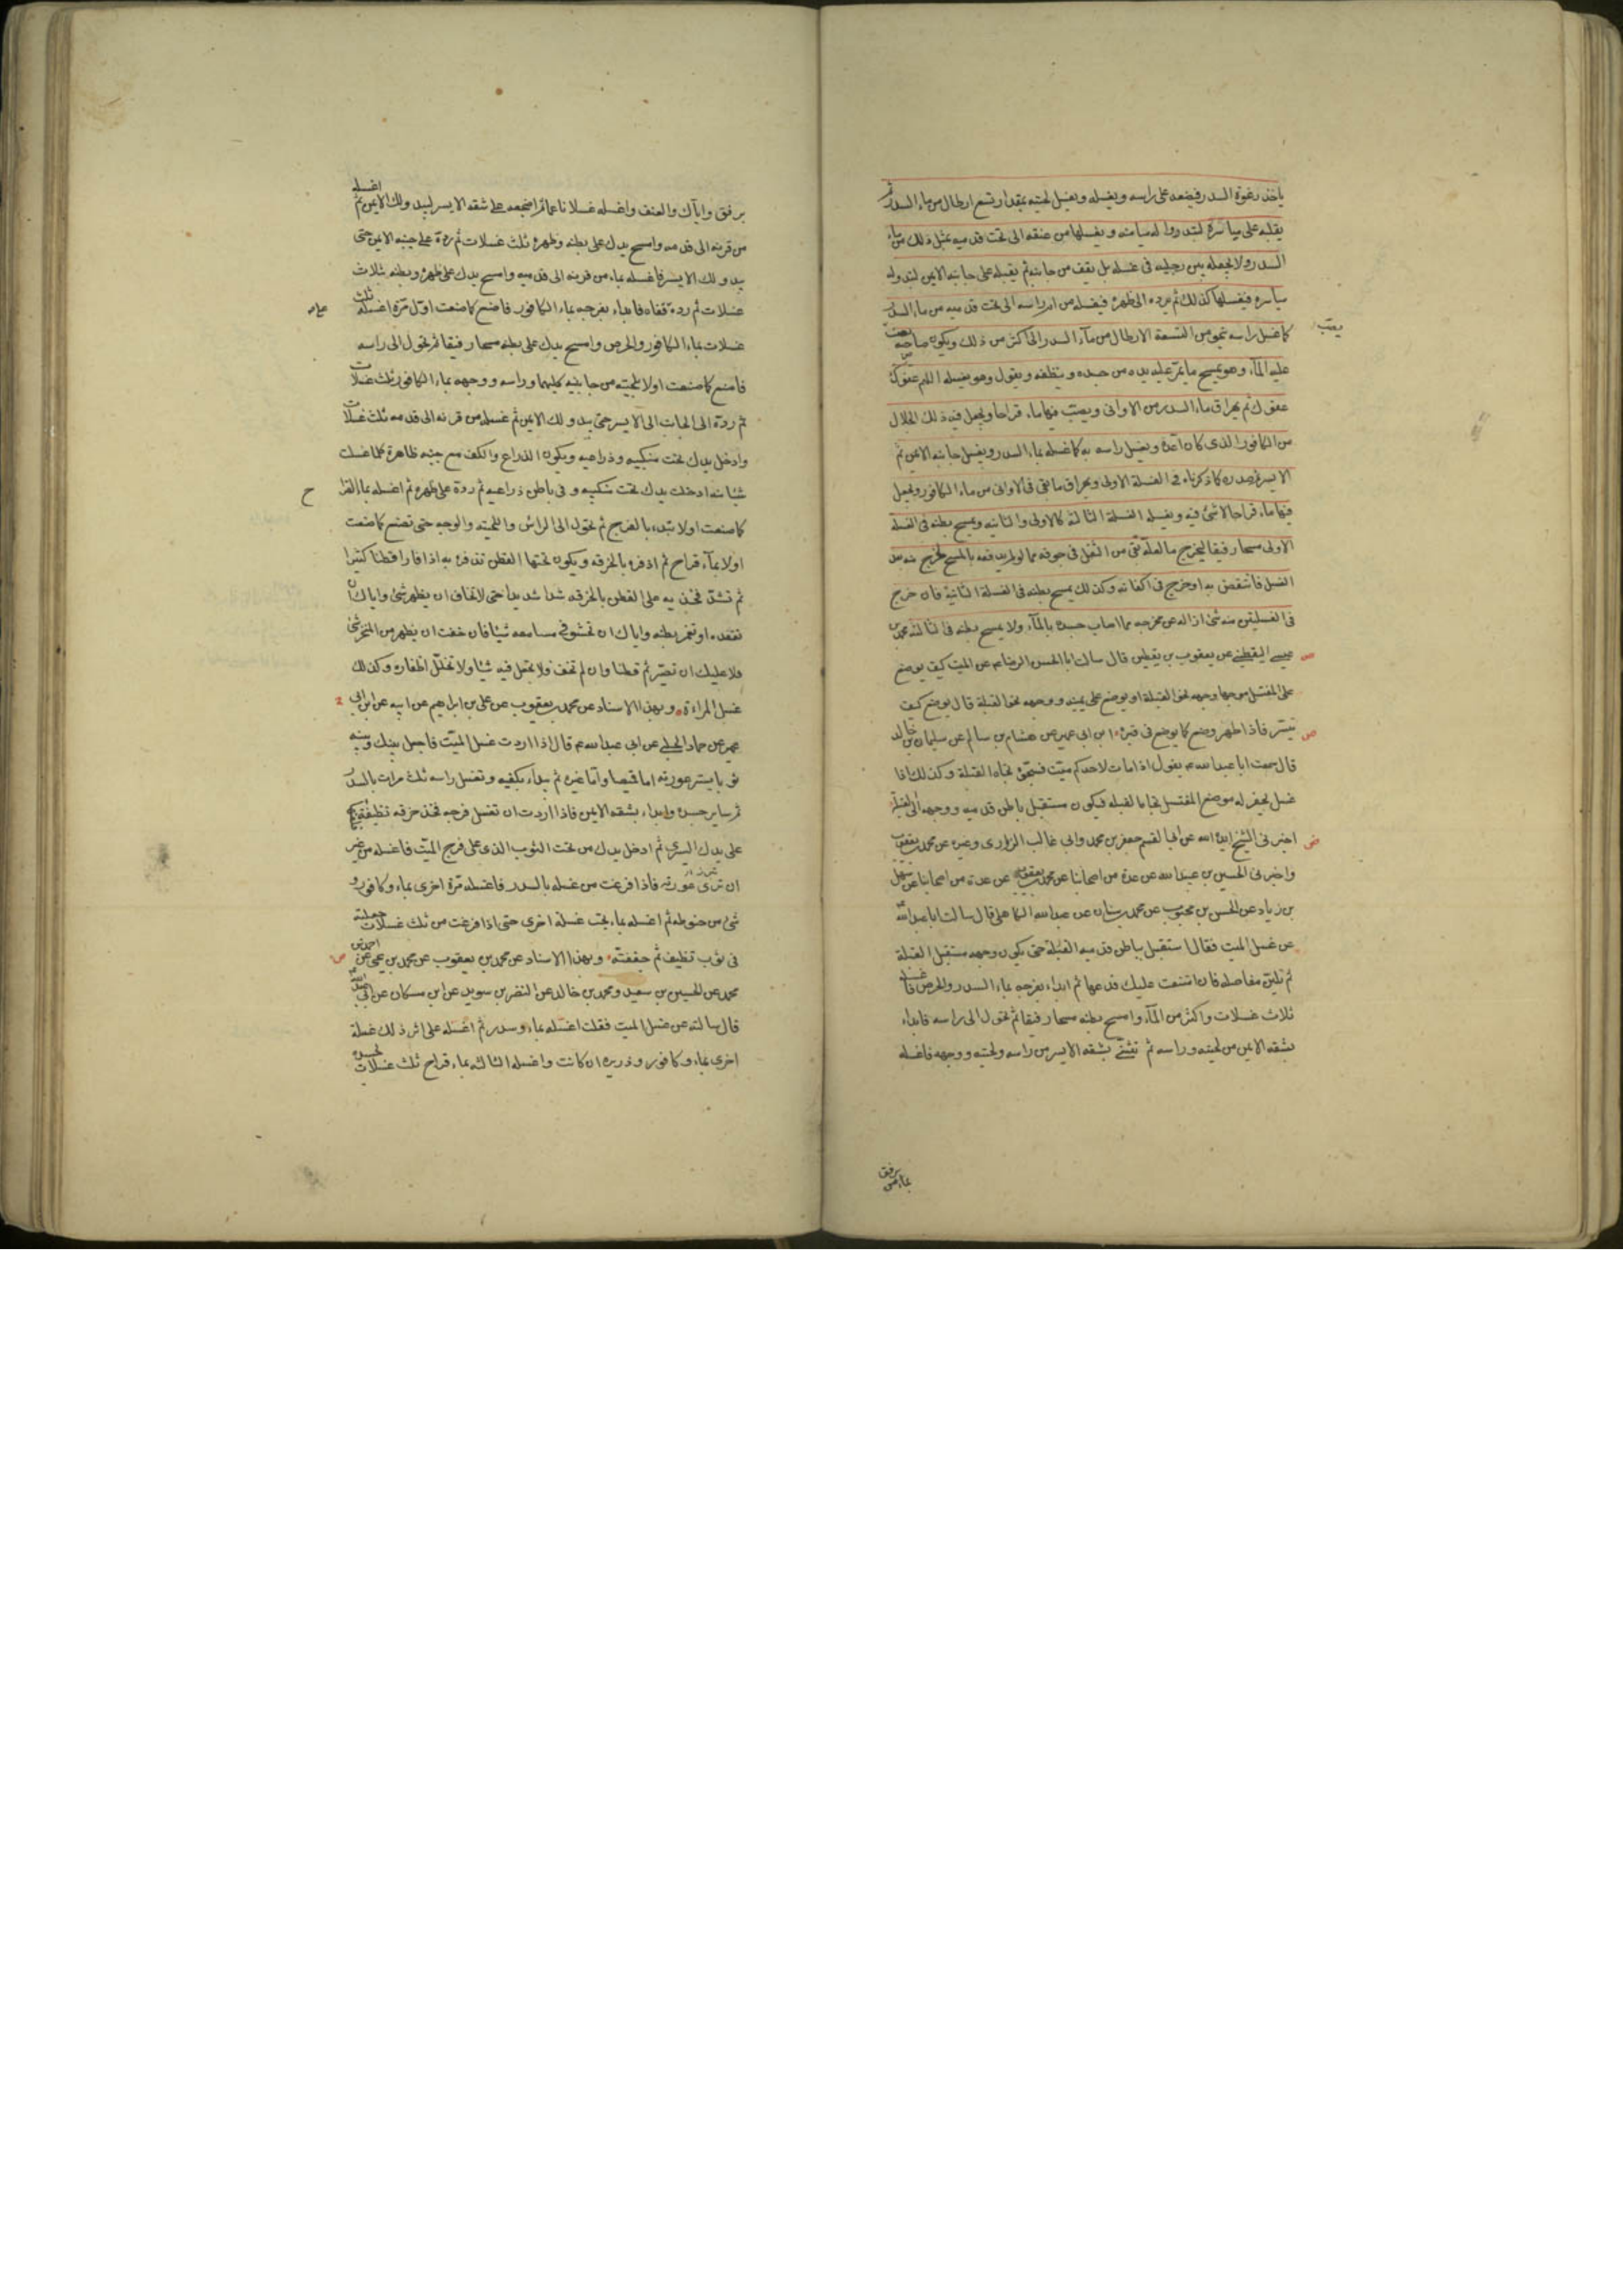 ياخذ رغوة السدر فيضعه على راسه ويغسله ويغسل لحيته بمقدار تسع ارطال من ماء السدر ثم
يقلبه على مياسره لتبدو له ميامنه ويغسلها من عنقه الى تحت قدميه بمثل ذلك من ماء
السدر ولا يجعله بين رجليه فى غسله بل يقف من جانبه ثم يقلبه على جانبه الايمن لتبدو له
مياسره فيغسلها كذلك ثم يرده الى ظهره فيغسله من ام راسه الى تحت قدميه من ماء السدر
كما غسل راسه بنحو من التسعة الارطال من مآء السدر الى اكثر من ذلك ويكون صاحبه يصب
عليه المآء وهو يمسح ما يمر عليه يده من جسده وينظفه ويقول وهو يغسله اللهم عفوك
عفوك ثم يهراق ماء السدر من الاوانى ويصب فيها ماء قراحا ويجعل فيه ذلك الجلال
من الكافور الذى كان اعده ويغسل راسه به كما غسله بماء السدر ويغسل جانبه الايمن ثم
الايسر ثم صدره كما ذكرناه فى الغسلة الاولى ويهراق ما بقى فى الاوانى من ماء الكافور ويجعل
فيها ماء قراحا لا شئ فيه ويغسله الغسلة الثالثة كالاولى والثانيه ويمسح بطنه فى الغسلة
الاولى مسحا رفيقا ليخرج ما لعله بقى من الثفل فى جوفه مما لو لم يدفعه بالمسح لخرج منه بعد
الغسل فانتقض به او خرج فى اكفانه وكذلك يمسح بطنه فى الغسلة الثانية فان خرج
فى الغسلتين منه شئ ازاله عن مخرجه مما اصاب جسده بالمآء ولا يمسح بطنه فى الثالثة محمد بن
عيسى اليقطينى عن يعقوب بن يقطين قال سالت ابا الحسن الرضا عم عن الميت كيف يوضع
على المغتسل موجها وجهه نحو القبلة او يوضع على يمينه ووجهه نحو القبلة قال يوضع كيف
تيسر فاذا طهر وضع كما يوضع فى قبره ابن ابى عمير عن هشام بن سالم عن سليمان بن خالد
قال سمعت ابا عبد الله عم يقول اذا مات لاحدكم ميت فسجوه تجاه القبلة وكذلك اذا
غسل يحفر له موضع المغتسل تجاه القبله فيكون مستقبل باطن قدميه ووجهه الى القبلة
اخبرنى الشيخ ايده الله عن ابى القسم جعفر بن محمد وابى غالب الزرارى وغيره عن محمد بن يعقوب
واخبرنى الحسين بن عبيد الله عن عدة من اصحابنا عن محمد بن يعقوب عن عدة من اصحابنا عن سهل
بن زياد عن الحسن بن محبوب عن محمد بن سنان عن عبد الله الكاهلى قال سالت ابا عبد الله عم
عن غسل الميت فقال استقبل بباطن قدميه القبلة حتى يكون وجهه مستقبل القبلة
ثم تلين مفاصله فان امتنعت عليك فدعها ثم ابداء بفرجه بماء السدر والحرض فاغسله
ثلاث غسلات واكثر من المآء وامسح بطنه مسحا رفيقا ثم تحول الى راسه فابداء
بشقه الايمن من لحيته وراسه ثم تثنى بشقه الايسر من راسه ولحيته ووجهه فاغسله
برفق
برفق واياك والعنف واغسله غسلا ناعما ثم اضجعه على شقه الايسر ليبد ولك الايمن ثم اغسله
من قرنه الى قدمه وامسح يدك على بطنه وظهره ثلث غسلات ثم رده على جنبه الايمن حتى
يبدو لك الايسر فاغسله بماء من قرنه الى قدميه وامسح يدك على ظهره وبطنه بثلاث
غسلات ثم رده قفاه فابداء بفرجه بماء الكافور فاصنع كما صنعت اول مرة اغسله ثلث
غسلات بماء الكافور والحرض وامسح يدك على بطنه مسحا رفيقا ثم تحول الى راسه
فاصنع كما صنعت اولا بلحيته من جانبيه كليهما وراسه ووجهه بماء الكافور ثلث غسلات
ثم رده الى الجانب الى الايسر حتى يبدو لك الايمن ثم غسله من قرنه الى قدمه ثلث غسلات
وادخل يدك تحت منكبيه وذراعيه ويكون الذراع والكف مع جنبه ظاهرة كلما غسلت
شيئا منه ادخلت يدك تحت منكبيه وفى باطن ذراعيه ثم رده على ظهره ثم اغسله بماء القراح
كما صنعت اولا تبدء بالفرج ثم تحول الى الراس واللحيته والوجه حتى تصنع كما صنعت
اولا بمآء قراح ثم اذفره بالخرقه ويكون تحتها القطن تذفره به اذفارا قطنا كثيرا
ثم تشد فخذيه على القطن بالخرقه شدا شديدا حتى لا تخاف ان يظهر شئ واياك ان
تقعده او تغمز بطنه واياك ان تحشو فى مسامعه شيئا فان خفت ان يظهر من المنخر شئ
فلا عليك ان تصير ثم قطنا وان لم تخف فلا تجعل فيه شيئا ولا تخلل اظفاره وكذلك
غسل المراءة وبهذا الاسناد عن محمد بن يعقوب عن على بن ابراهيم عن ابيه عن ابن ابى
عمير عن حماد عن الحلبى عن ابى عبد الله عم قال اذا اردت غسل الميت فاجعل بينك وبينه
ثوبا يستر عورته اما قميصا واما غيره ثم تبدآء بكفيه وتغسل راسه ثلث مرات بالسدر
ثم ساير جسده وابداء بشقه الايمن فاذا اردت ان تغسل فرجه فخذ خرقه نظيفة فلفها
على يدك اليسرى ثم ادخل يدك من تحت الثوب الذى على فرج الميت فاغسله من غير
ان ترى عورته فاذا فرغت من غسله بالسدر فاغسله مرة اخرى بماء وكافور و
شئ من حنوطه ثم اغسله بماء بحت غسلة اخرى حتى اذا فرغت من ثلث غسلات جعلته
فى ثوب نظيف ثم جففته وبهذا الاسناد عن محمد بن يعقوب عن محمد بن يحيى عن احمد بن
محمد عن الحسين بن سعيد ومحمد بن خالد عن النضر بن سويد عن ابن مسكان عن ابى عبد الله عم
قال سالته عن غسل الميت فقلت اغسله بماء وسدر ثم اغسله على اثر ذلك غسلة
اخرى بماء وكافور وذريره ان كانت واغسله الثالثه بماء قراح ثلث غسلات لجسده